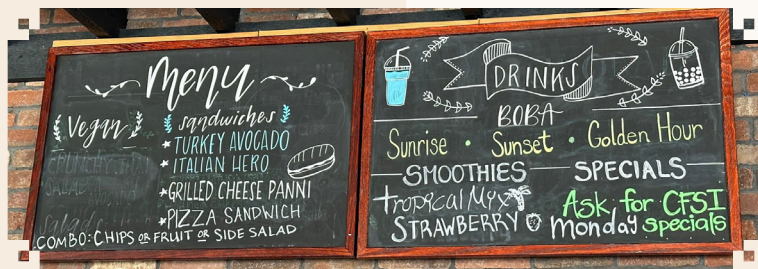 menu
Vegan
sandwiches
★ TURKEY AVOCADO
★ ITALIAN HERO
★ GRILLED CHEESE PANNI
★ PIZZA SANDWICH
COMBO: CHIPS OR FRUIT OR SIDE SALAD
DRINKS
BOBA
Sunrise • Sunset • Golden Hour
SMOOTHIES
Tropical Mix
STRAWBERRY
SPECIALS
Ask for CFSI
Monday specials